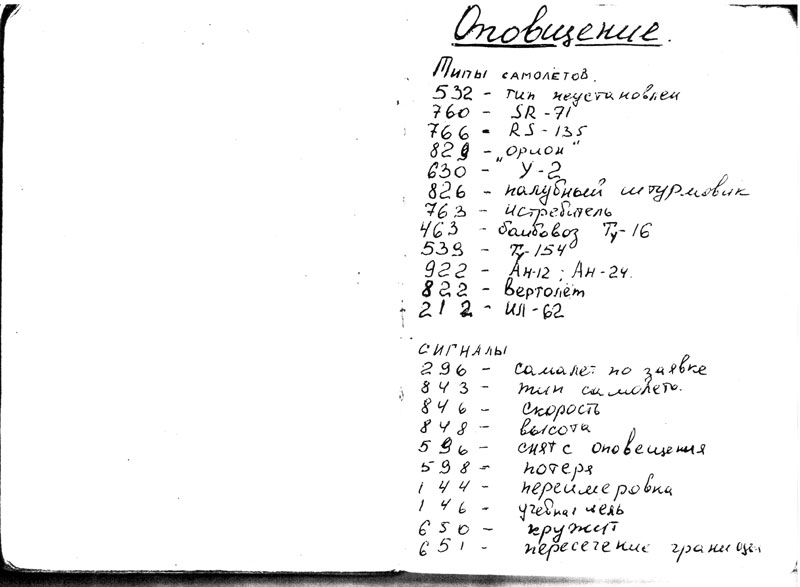 Оповщение.
Типы самолётов.
532 - тип неустановлен
760 - SR-71
766 - RS-135
829 - "Орион"
630 - У-2
826 - палубный штурмовик
763 - истребитель
463 - бомбовоз Ту-16
539 - Ту-154
922 - Ан-12; Ан-24.
822 - вертолёт
212 - ИЛ-62
СИГНАЛЫ
296 - самалет по заявке
843 - тип самолета.
846 - скорость
848 - высота
596 - снят с оповещения
598 - потеря
144 - переимеровка
146 - учебная цель
650 - кружит
651 - пересечение границы